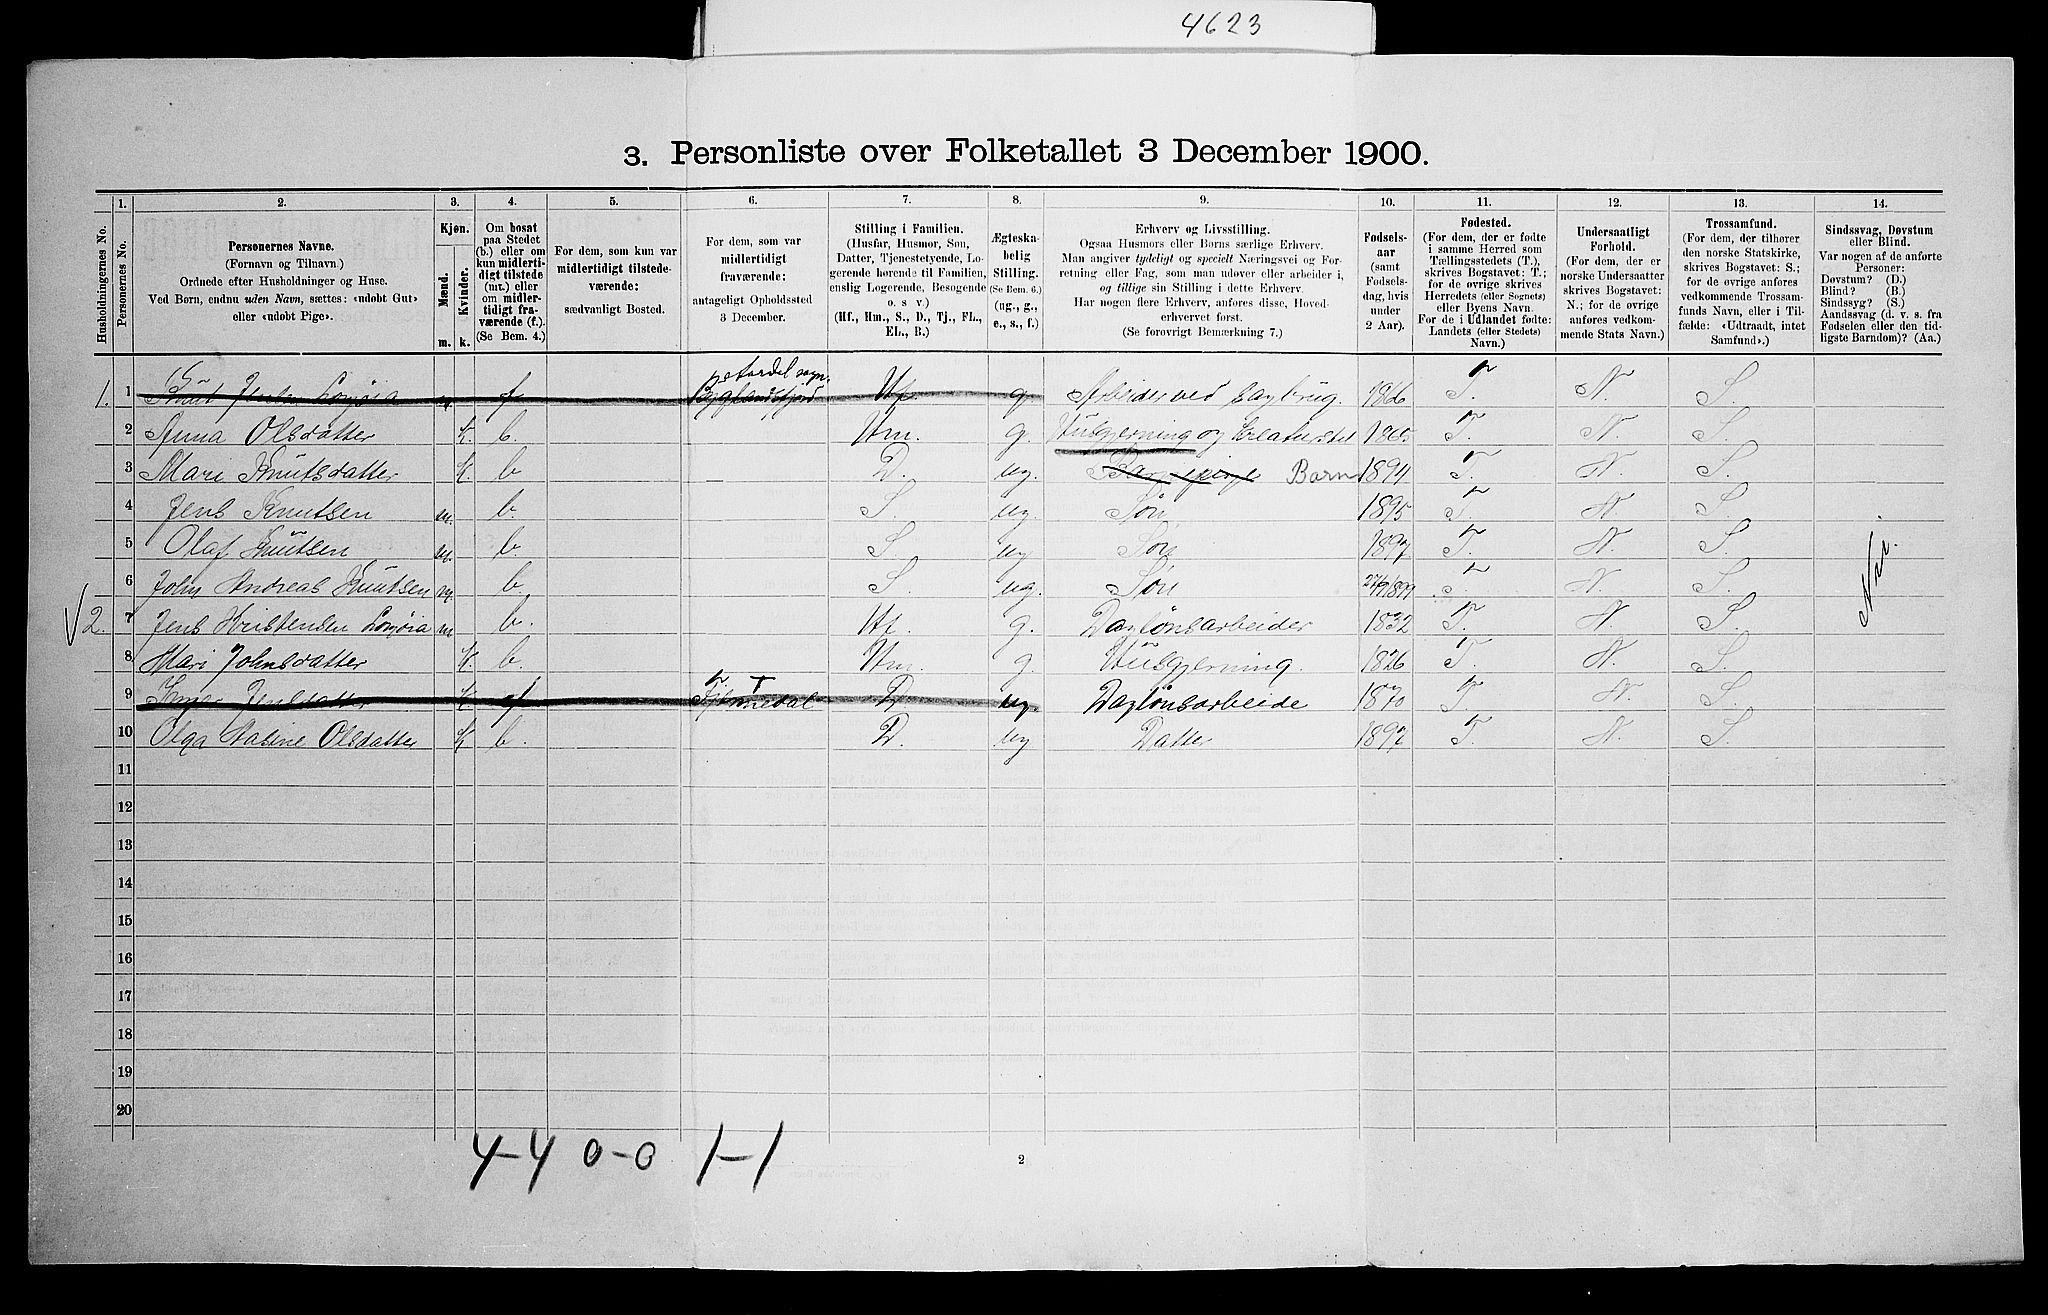 4623
3. Personliste over Folketallet 3 December 1900.
1. 2. 3. 4. 5. 6. 7. 8. 9. 10. 11. 12. 13. 14.
Husholdningernes No.
Personernes No.
Personernes Navne.
(Fornavn og Tilnavn.)
Ordnede efter Husholdninger og Huse.
Ved Børn, endnu uden Navn, sættes: «udøbt Gut»
eller «udøbt Pige».
Kjøn.
Mænd.
Kvinder.
m. k.
Om bosat
paa Stedet
(b.) eller om
kun midlerti-
digt tilstede
(mt.) eller
om midler-
tidigt fra-
værende (f.).
(Se Bem. 4.)
For dem, som kun var
midlertidigt tilstede-
værende:
sædvanligt Bosted.
For dem, som var
midlertidigt
fraværende:
antageligt Opholdssted
3 December.
Stilling i Familien.
(Husfar, Husmor, Søn,
Datter, Tjenestetyende, Lo-
gerende hørende til Familien,
enslig Logerende, Besøgende
o. s v.)
(Hf., Hm., S., D., Tj., FL.,
EL., B.)
Ægteska-
belig
Stilling.
(Se Bem. 6.)
(ug., g.,
e., s., f.)
Erhverv og Livsstilling.
Ogsaa Husmors eller Børns særlige Erhverv.
Man angiver tydeligt og specielt Næringsvei og For-
retning eller Fag, som man udøver eller arbeider i,
og tillige sin Stilling i dette Erhverv.
Har nogen flere Erhverv, anføres disse, Hoved-
erhvervet først.
(Se forøvrigt Bemærkning 7.)
Fødsels-
aar
(samt
Fødsels-
dag, hvis
under
2 Aar).
Fødested.
(For dem, der er fødte
i samme Herred som
Tællingsstedets (T.),
skrives Bogstavet: T.;
for de øvrige skrives
Herredets (eller Sognets)
eller Byens Navn.
For de i Udlandet fødte:
Landets (eller Stedets)
Navn.)
Undersaatligt
Forhold.
(For dem, der er
norske Undersaatter
skrives Bogstavet:
N.; for de øvrige
anføres vedkom-
mende Stats Navn.)
Trossamfund.
(For dem, der tilhører
den norske Statskirke,
skrives Bogstavet: S.;
for de øvrige anføres
vedkommende Trossam-
funds Navn, eller i Til-
fælde: «Udtraadt, intet
Samfund».)
Sindssvag, Døvstum
eller Blind.
Var nogen af de anførte
Personer:
Døvstum? (D.)
Blind? (B.)
Sindssyg? (S.)
Aandssvag (d. v. s. fra
Fødselen eller den tid-
ligste Barndom)? (Aa.)
1. 1 Knut Jensen m. f. Bygglandsfjord Hf. g. Arbeider ved Sagbrug. 1866 T. N. S.
2 Anna Olsdatter K. b. Hm. g. Husgjerning og Kreaturstel 1865 T. N. S.
3 Mari Knutsdatter K. b D. ug. Barn 1894 T. N. S.
4 Jens Knutsen m. b. S. ug. Søn 1895 T. N. S.
5 Olaf Knutsen m. b. S. ug Søn 1897 T. N. S.
6 John Andreas Knutsen m. b. S. ug. Søn 1899 T. N. S.
2. 7 Jens Kristensen m b. Hf. g. Daglønsarbeider 1832 T. N. S.
8 Mari Johnsdatter K. b. Hm. g. Husgjerning. 1826 T. N. S.
9 Jensdatter K. f D. ug. Daglønsarbeide 1870 T. N. S.
10 Olga Nasine Olsdatter K b. D. ug Datter 1897 T. N. S.
11
12
13
14
15
16
17
18
19
20
4-4 0-0 1-1
2